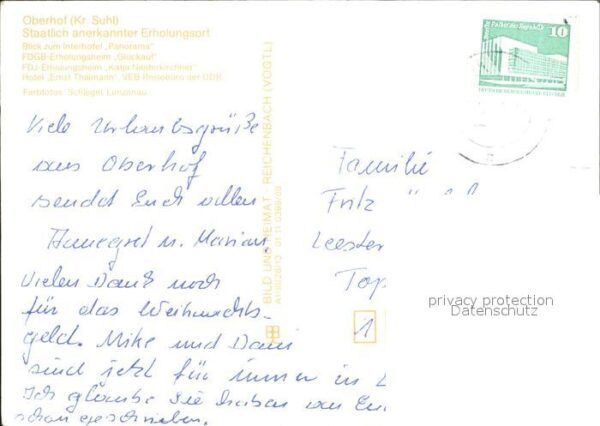 Oberhof (Kr. Suhl)
Staatlich anerkannter Erholungsort
Blick zum Interhotel „Panorama"
FDGB-Erholungsheim „Glückauf"
FDJ-Erholungsheim „Katja Niederkirchner"
Hotel „Ernst Thälmann", VEB Reisebüro der DDR
Farbfotos: Schlegel
BILD UND HEIMAT · REICHENBACH (VOGTL)
10
Palast der Republik
Viele Urlaubsgrüße
aus Oberhof
sendet Euch allen
Annegret u. Marian,
Vielen Dank noch
für das Weihnachts-
geld. Mike und Dani
sind jetzt für immer in
Ich glaube Sie haben an
schon geschrieben.
Familie
Fritz
Leester
Top
1
privacy protection
Datenschutz